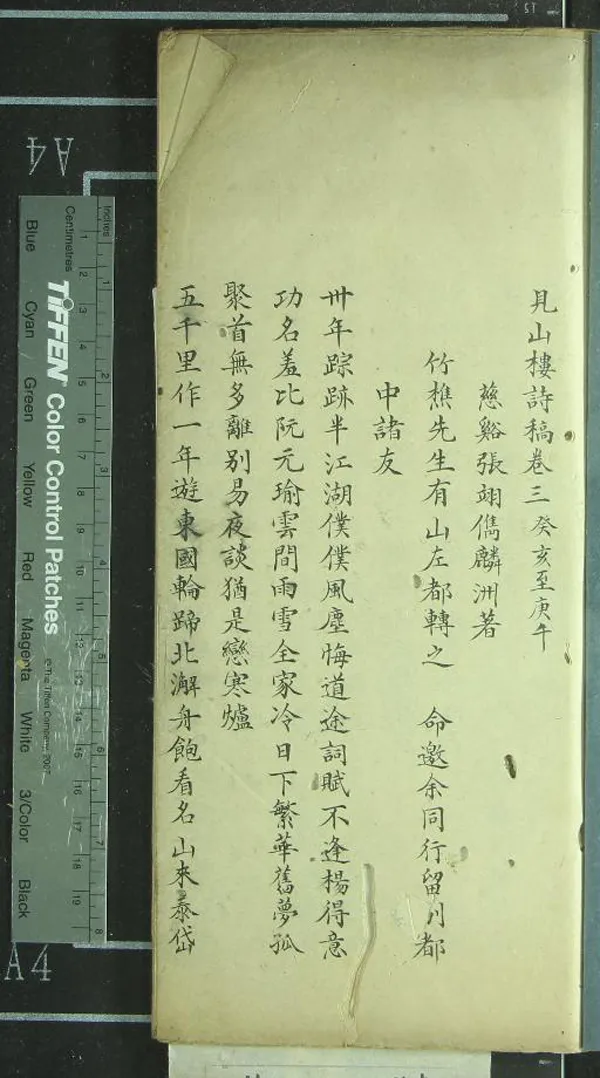 見山樓詩稿卷三 癸亥至庚午
慈谿張翊儁麟洲著
竹樵先生有山左都轉之 命邀余同行留別都
中諸友
卅年踪跡半江湖僕僕風塵悔道途詞賦不逢楊得意
功名羞比阮元瑜雲間雨雪全家冷日下繁華舊夢孤
聚首無多離別易夜談猶是戀寒爐
五千里作一年遊東國輪蹄北澥舟飽看名山來泰岱
A4
A4
Inches
Centimetres
TIFFEN Color Control Patches
© The Tiffen Company, 2007
Blue Cyan Green Yellow Red Magenta White 3/Color Black
1 2 3 4 5 6 7 8
1 2 3 4 5 6 7 8 9 10 11 12 13 14 15 16 17 18 19